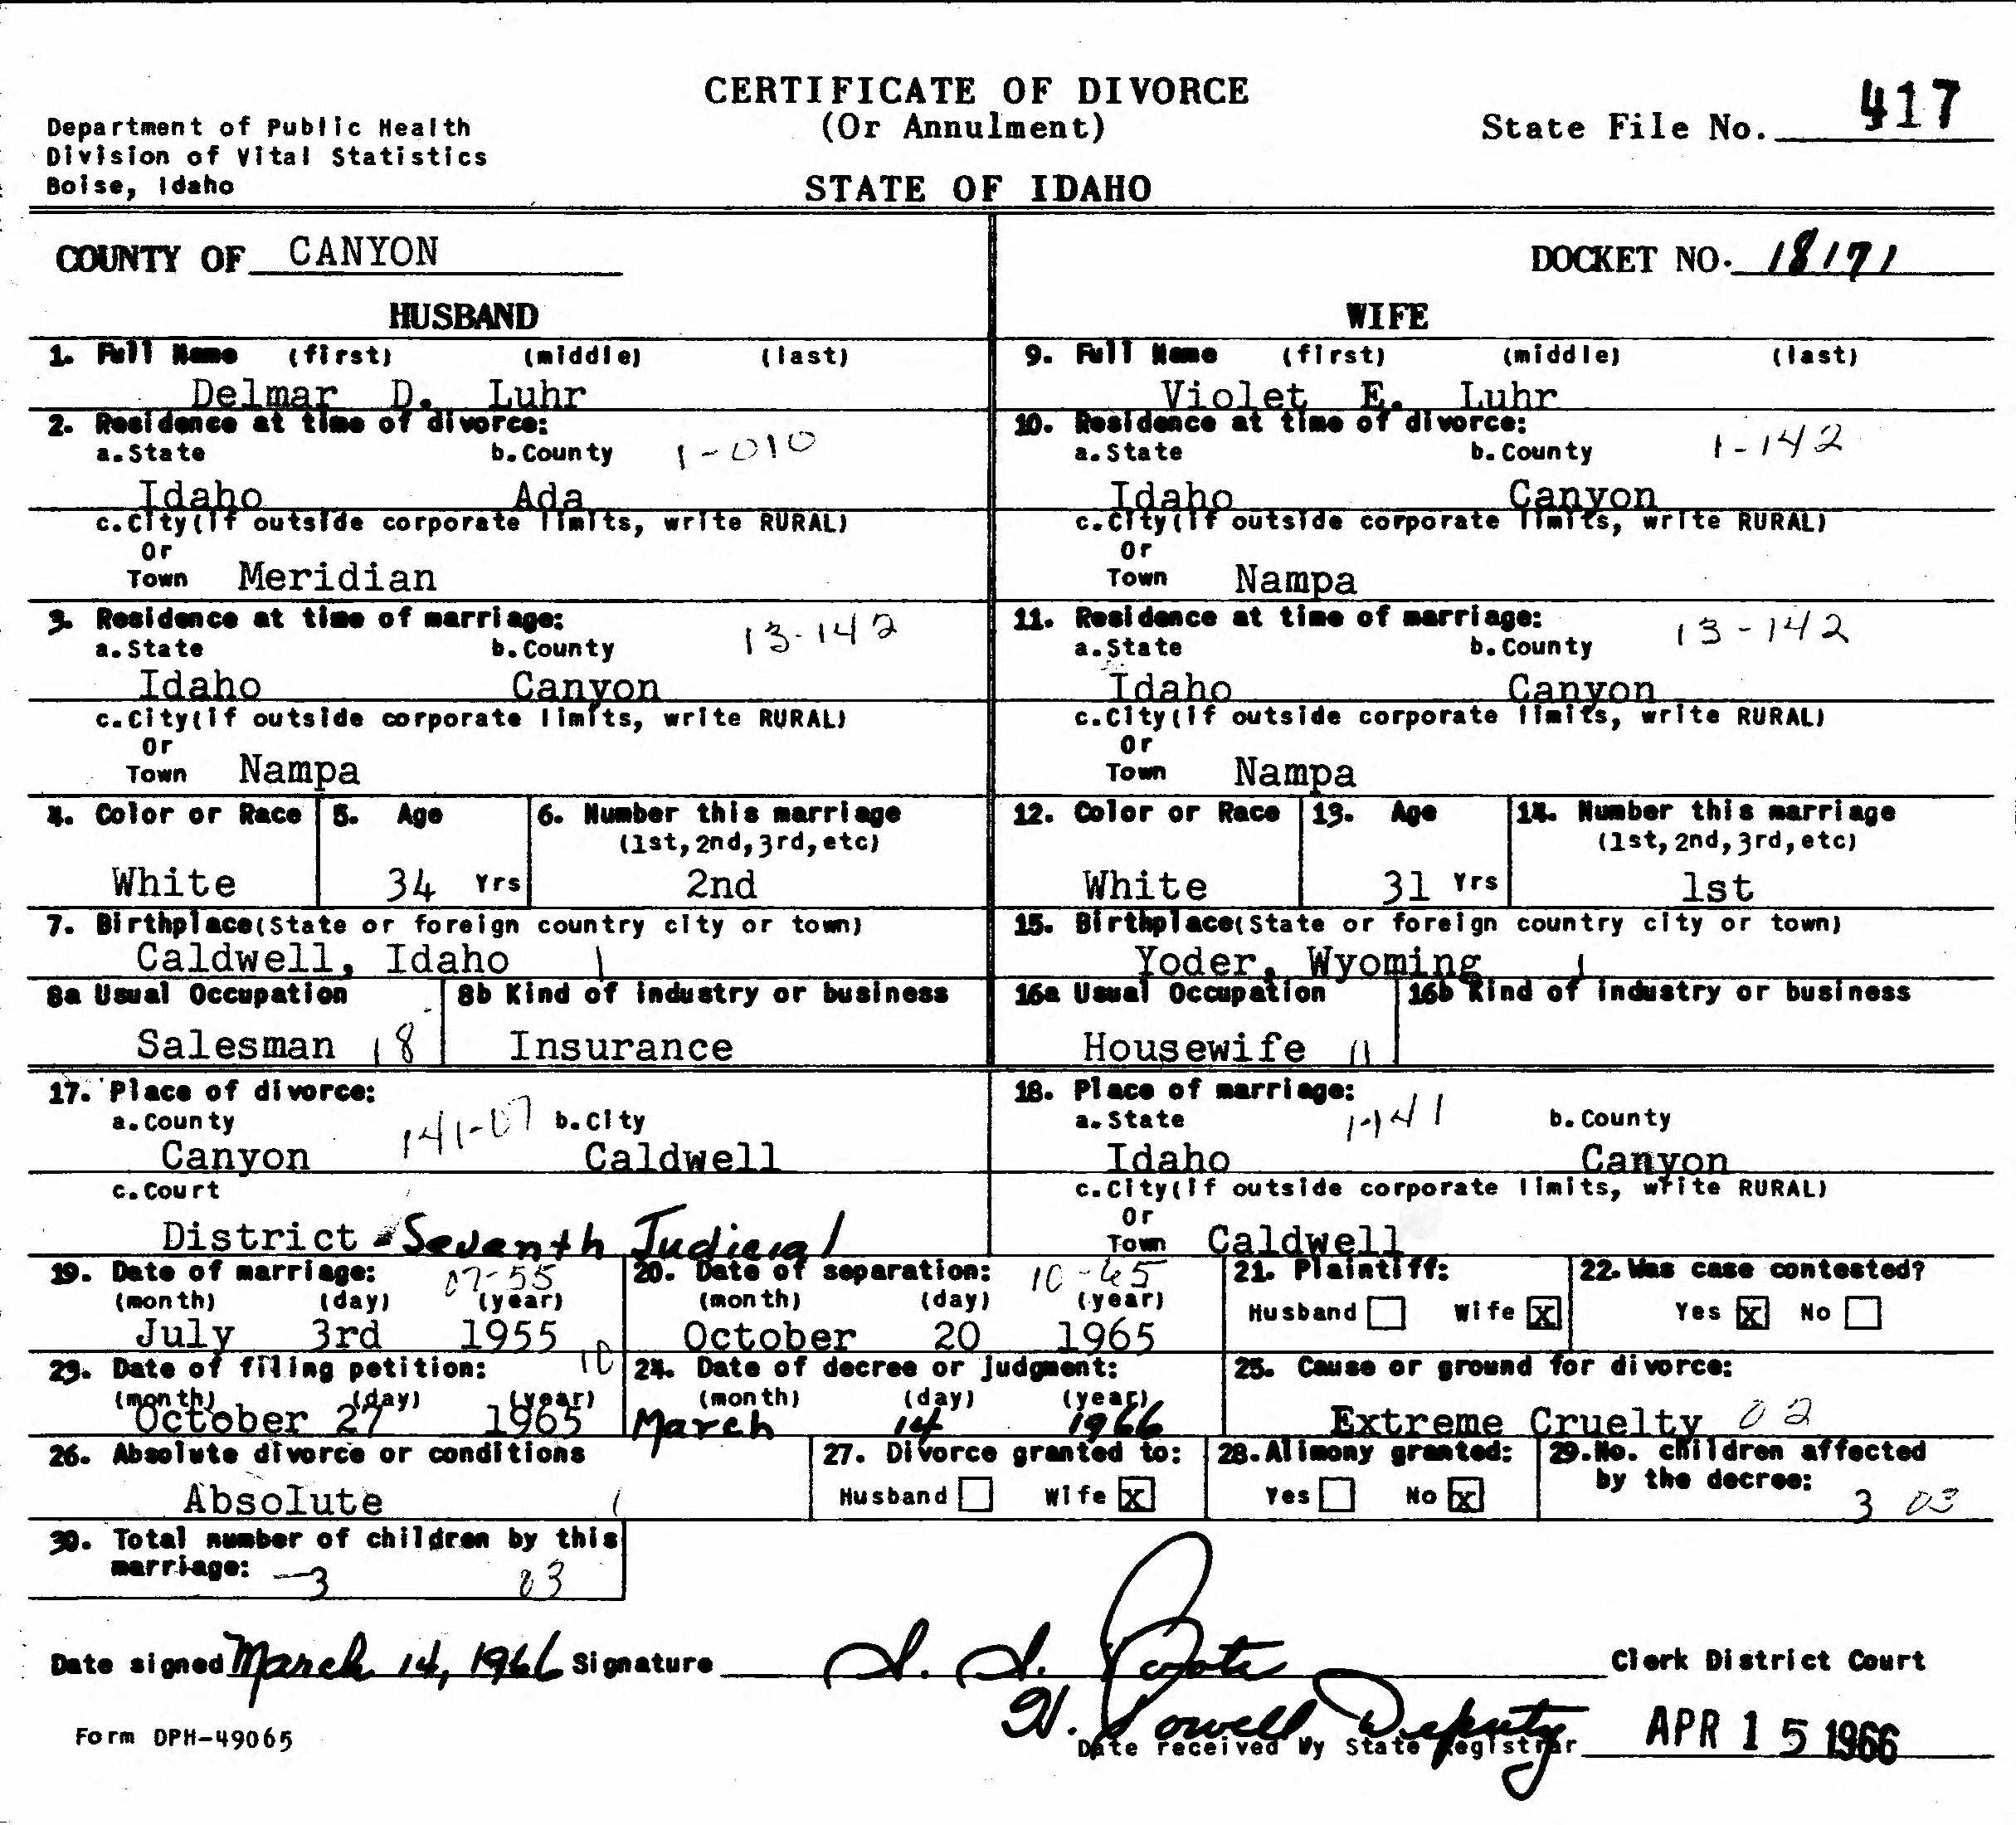 CERTIFICATE OF DIVORCE
(Or Annulment)
STATE OF IDAHO
Department of Public Health
Division of Vital Statistics
Boise, Idaho
State File No. 417
COUNTY OF CANYON
DOCKET NO. 18171
HUSBAND
1. Full Name (first) (middle) (last)
Delmar D. Luhr
2. Residence at time of divorce:
a. State b. County 1-010
Idaho Ada
c. City (if outside corporate limits, write RURAL)
or
Town Meridian
3. Residence at time of marriage:
a. State b. County 13-142
Idaho Canyon
c. City (if outside corporate limits, write RURAL)
or
Town Nampa
4. Color or Race 5. Age 6. Number this marriage
(1st, 2nd, 3rd, etc)
White 34 Yrs 2nd
7. Birthplace (State or foreign country city or town)
Caldwell, Idaho 1
8a Usual Occupation 8b Kind of industry or business
Salesman 18 Insurance
WIFE
9. Full Name (first) (middle) (last)
Violet E. Luhr
10. Residence at time of divorce:
a. State b. County 1-142
Idaho Canyon
c. City (if outside corporate limits, write RURAL)
or
Town Nampa
11. Residence at time of marriage:
a. State b. County 13-142
Idaho Canyon
c. City (if outside corporate limits, write RURAL)
or
Town Nampa
12. Color or Race 13. Age 14. Number this marriage
(1st, 2nd, 3rd, etc)
White 31 Yrs 1st
15. Birthplace (State or foreign country city or town)
Yoder, Wyoming 1
16a Usual Occupation 16b Kind of industry or business
Housewife 11
17. Place of divorce:
a. County 141-07 b. City
Canyon Caldwell
c. Court
District - Seventh Judicial
18. Place of marriage:
a. State 1-141 b. County
Idaho Canyon
c. City (if outside corporate limits, write RURAL)
or
Town Caldwell
19. Date of marriage: 07-55
(month) (day) (year)
July 3rd 1955
20. Date of separation: 10-65
(month) (day) (year)
October 20 1965
21. Plaintiff:
Husband Wife X
22. Was case contested?
Yes X No
23. Date of filing petition: 10
(month) (day) (year)
October 27 1965
24. Date of decree or judgment:
(month) (day) (year)
March 14 1966
25. Cause or ground for divorce:
Extreme Cruelty 02
26. Absolute divorce or conditions
Absolute 1
27. Divorce granted to:
Husband Wife X
28. Alimony granted:
Yes No X
29. No. children affected
by the decree:
3 03
30. Total number of children by this
marriage: 3 03
Date signed March 14, 1966 Signature Clerk District Court
Deputy
Form DPH-49065
Date received by State Registrar APR 15 1966